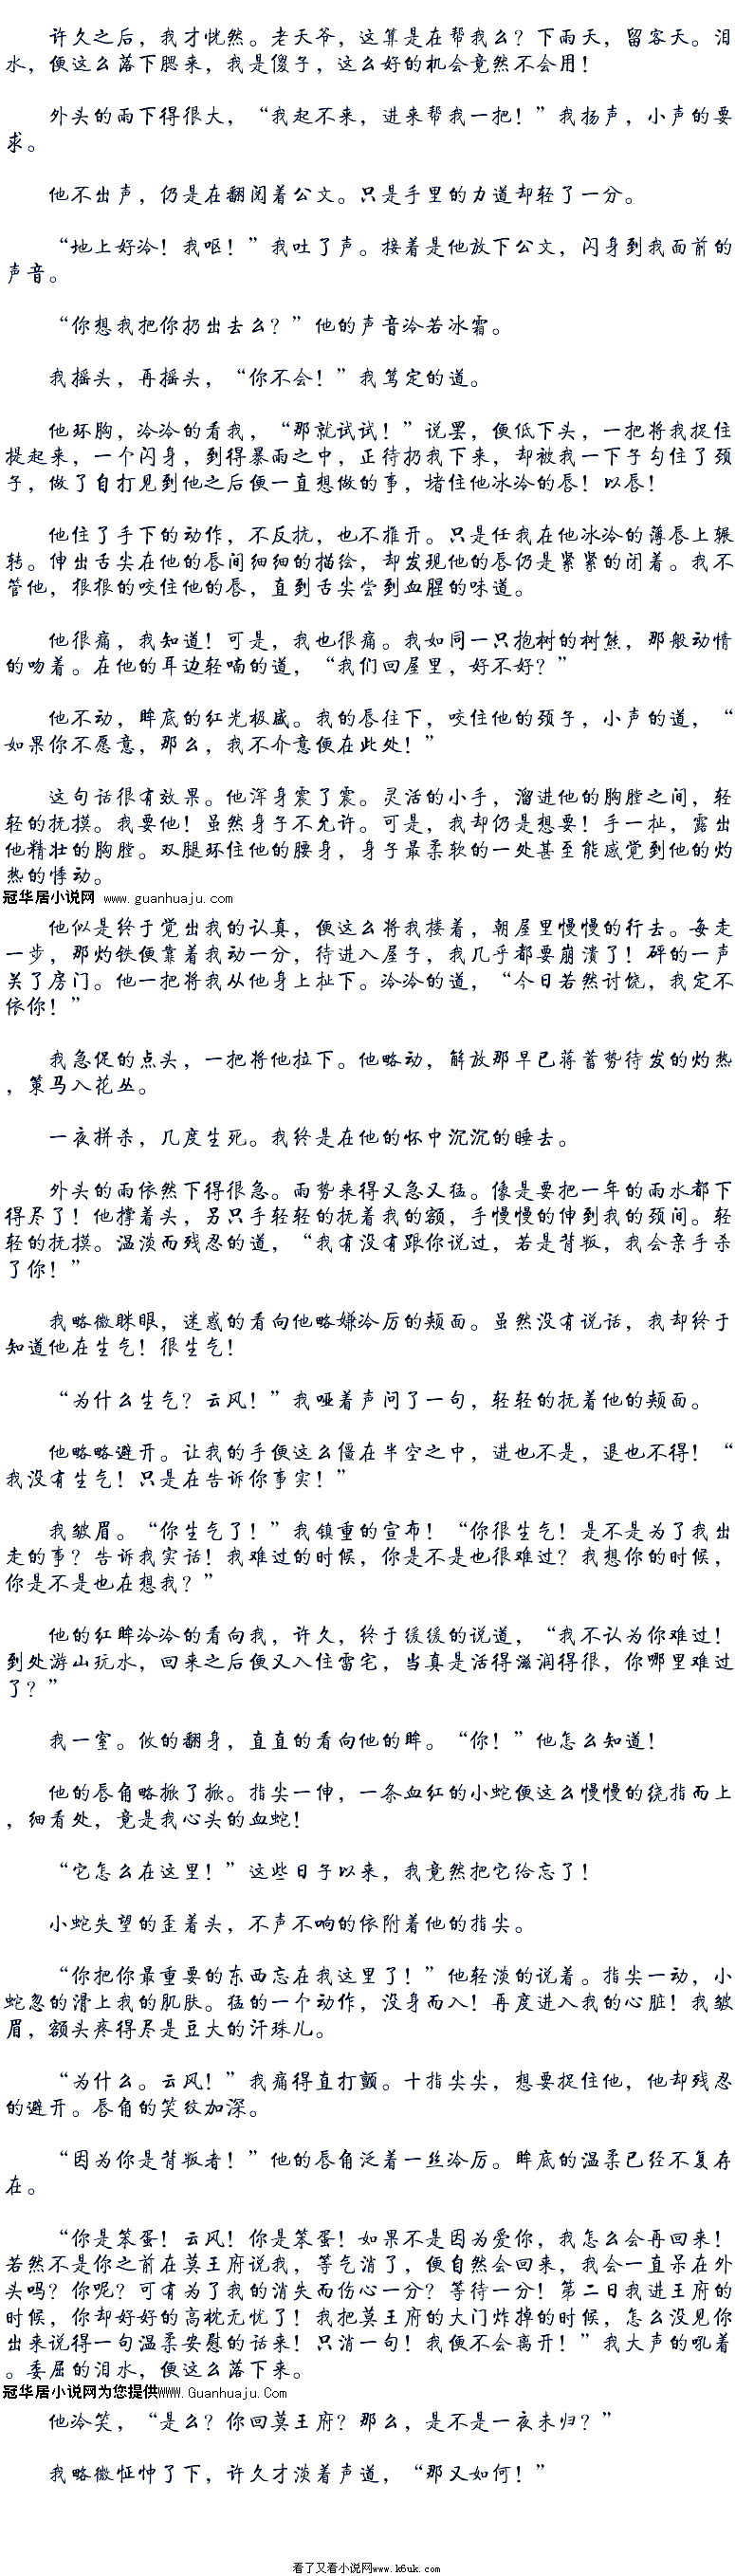 许久之后，我才恍然。老天爷，这算是在帮我么？下雨天，留客天。泪
水，便这么落下腮来，我是傻子，这么好的机会竟然不会用！
外头的雨下得很大，“我起不来，进来帮我一把！”我扬声，小声的要
求。
他不出声，仍是在翻阅着公文。只是手里的力道却轻了一分。
“地上好冷！我呕！”我吐了声。接着是他放下公文，闪身到我面前的
声音。
“你想我把你扔出去么？”他的声音冷若冰霜。
我摇头，再摇头，“你不会！”我笃定的道。
他环胸，冷冷的看我，“那就试试！”说罢，便低下头，一把将我捉住
提起来，一个闪身，到得暴雨之中，正待扔我下来，却被我一下子勾住了颈
子，做了自打见到他之后便一直想做的事，堵住他冰冷的唇！以唇！
他住了手下的动作，不反抗，也不推开。只是任我在他冰冷的薄唇上辗
转。伸出舌尖在他的唇间细细的描绘，却发现他的唇仍是紧紧的闭着。我不
管他，狠狠的咬住他的唇，直到舌尖尝到血腥的味道。
他很痛，我知道！可是，我也很痛。我如同一只抱树的树熊，那般动情
的吻着。在他的耳边轻喃的道，“我们回屋里，好不好？”
他不动，眸底的红光极盛。我的唇往下，咬住他的颈子，小声的道，“
如果你不愿意，那么，我不介意便在此处！”
这句话很有效果。他浑身震了震。灵活的小手，溜进他的胸膛之间，轻
轻的抚摸。我要他！虽然身子不允许。可是，我却仍是想要！手一扯，露出
他精壮的胸膛。双腿环住他的腰身，身子最柔软的一处甚至能感觉到他的灼
热的悸动。
冠华居小说网 www.guanhuaju.com
他似是终于觉出我的认真，便这么将我搂着，朝屋里慢慢的行去。每走
一步，那灼铁便靠着我动一分，待进入屋子，我几乎都要崩溃了！砰的一声
关了房门。他一把将我从他身上扯下。冷冷的道，“今日若然讨饶，我定不
依你！”
我急促的点头，一把将他拉下。他略动，解放那早已蒋蓄势待发的灼热
，策马入花丛。
一夜拼杀，几度生死。我终是在他的怀中沉沉的睡去。
外头的雨依然下得很急。雨势来得又急又猛。像是要把一年的雨水都下
得尽了！他撑着头，另只手轻轻的抚着我的额，手慢慢的伸到我的颈间。轻
轻的抚摸。温淡而残忍的道，“我有没有跟你说过，若是背叛，我会亲手杀
了你！”
我略微眯眼，迷惑的看向他略嫌冷厉的颊面。虽然没有说话，我却终于
知道他在生气！很生气！
“为什么生气？云风！”我哑着声问了一句，轻轻的抚着他的颊面。
他略略避开。让我的手便这么僵在半空之中，进也不是，退也不得！“
我没有生气！只是在告诉你事实！”
我皱眉。“你生气了！”我镇重的宣布！“你很生气！是不是为了我出
走的事？告诉我实话！我难过的时候，你是不是也很难过？我想你的时候，
你是不是也在想我？”
他的红眸冷冷的看向我，许久，终于缓缓的说道，“我不认为你难过！
到处游山玩水，回来之后便又入住雷宅，当真是活得滋润得很，你哪里难过
了？”
我一窒。攸的翻身，直直的看向他的眸。“你！”他怎么知道！
他的唇角略掀了掀。指尖一伸，一条血红的小蛇便这么慢慢的绕指而上
，细看处，竟是我心头的血蛇！
“它怎么在这里！”这些日子以来，我竟然把它给忘了！
小蛇失望的歪着头，不声不响的依附着他的指尖。
“你把你最重要的东西忘在我这里了！”他轻淡的说着。指尖一动，小
蛇忽的滑上我的肌肤。猛的一个动作，没身而入！再度进入我的心脏！我皱
眉，额头疼得尽是豆大的汗珠儿。
“为什么。云风！”我痛得直打颤。十指尖尖，想要捉住他，他却残忍
的避开。唇角的笑纹加深。
“因为你是背叛者！”他的唇角泛着一丝冷厉。眸底的温柔已经不复存
在。
“你是笨蛋！云风！你是笨蛋！如果不是因为爱你，我怎么会再回来！
若然不是你之前在莫王府说我，等气消了，便自然会回来，我会一直呆在外
头吗？你呢？可有为了我的消失而伤心一分？等待一分！第二日我进王府的
时候，你却好好的高枕无忧了！我把莫王府的大门炸掉的时候，怎么没见你
出来说得一句温柔安慰的话来！只消一句！我便不会离开！”我大声的吼着
。委屈的泪水，便这么落下来。
冠华居小说网为您提供WWW.Guanhuaju.Com
他冷笑，“是么？你回莫王府？那么，是不是一夜未归？”
我略微怔忡了下，许久才淡着声道，“那又如何！”
看了又看小说网www.k6uk.com